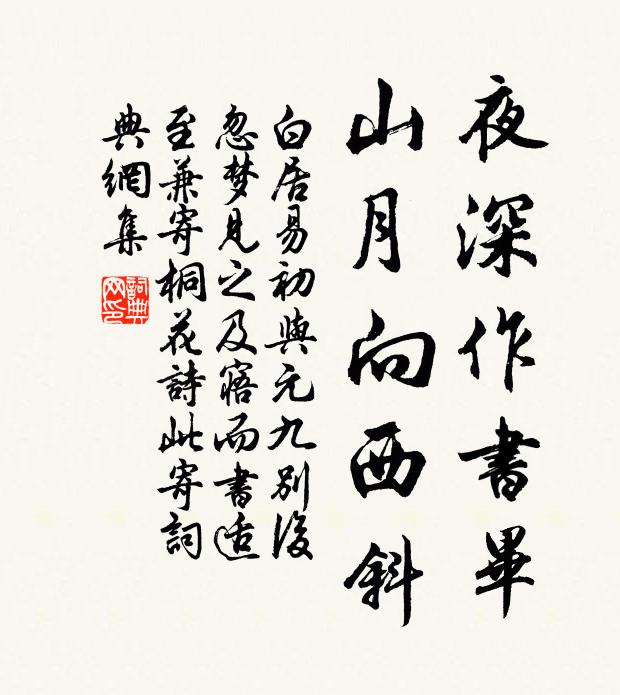 夜深作書畢
山月向西斜
白居易初與元九別後
忽梦見之及寤而書适
至兼寄桐花詩此寄詞
典網集
詞典网印